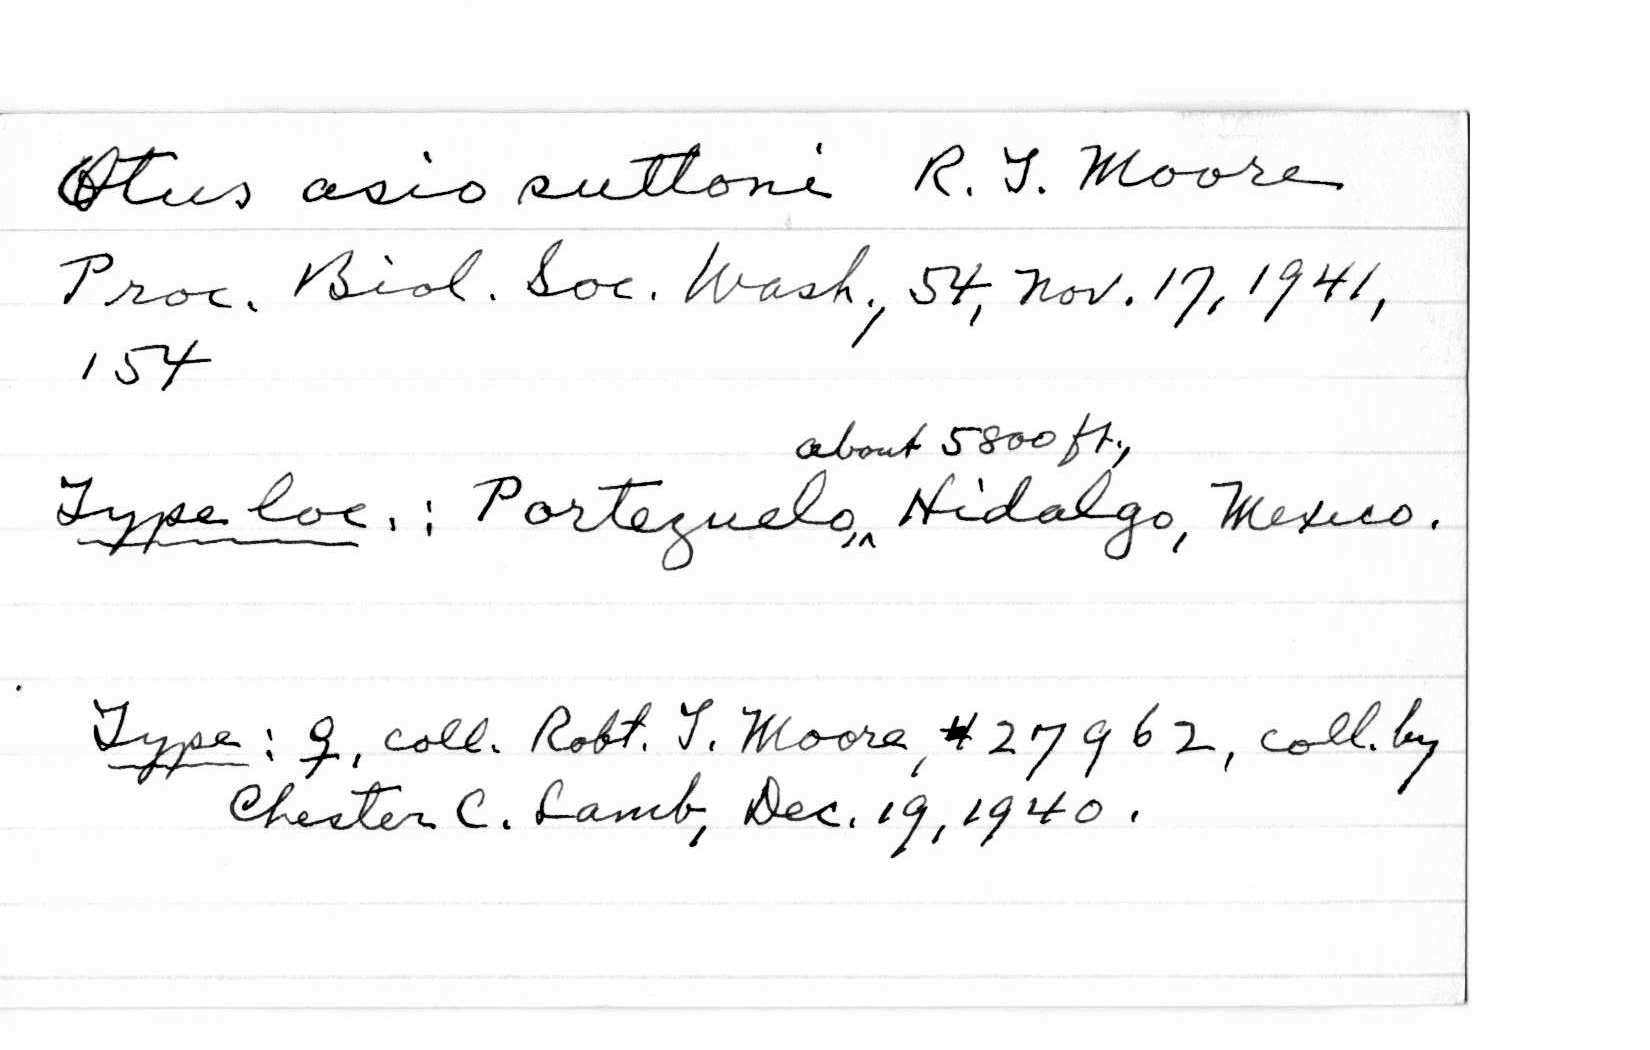 Otus asio suttoni R. T. Moore
Proc. Biol. Soc. Wash., 54, Nov. 17, 1941,
154
about 5800 ft.,
Type loc.: Portezuelo,^ Hidalgo, Mexico.
Type: ♀, coll. Robt. T. Moore, #27962, coll. by
Chester C. Lamb, Dec. 19, 1940.